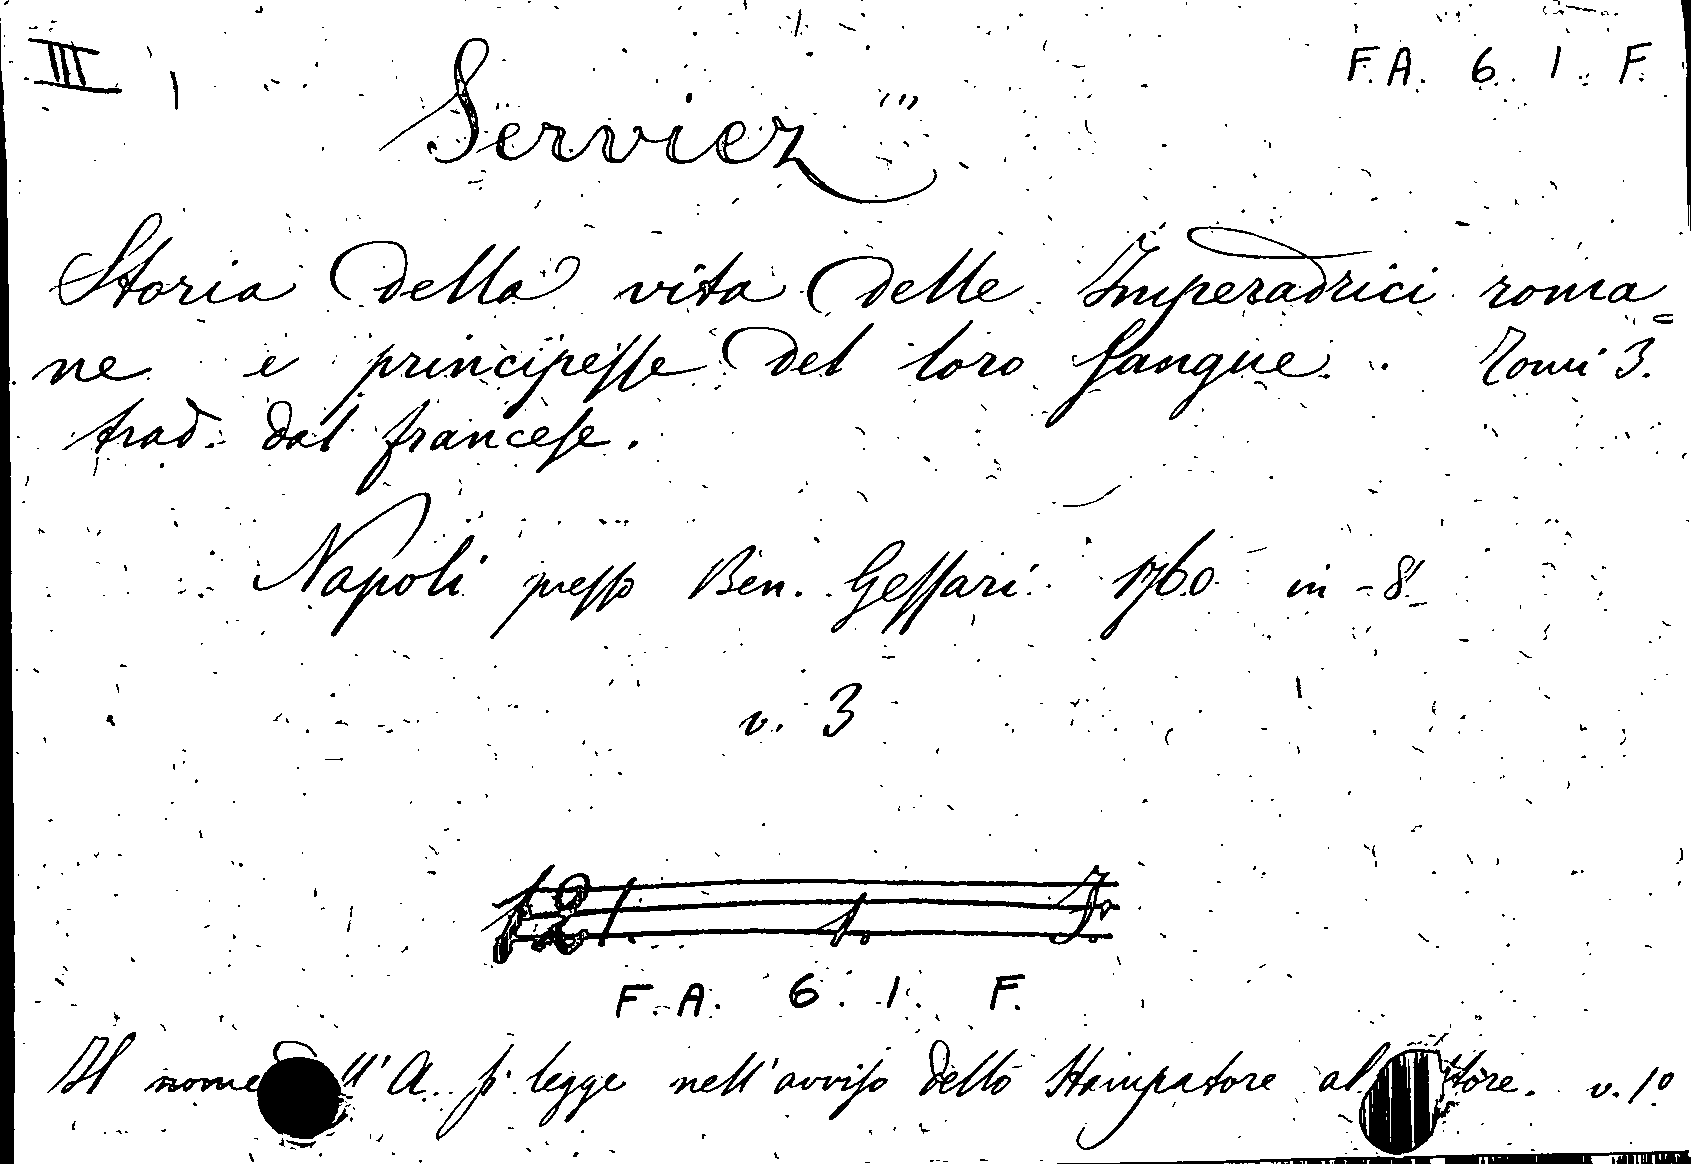 III 1 F. A. 6. 1. F.
Serviez
Storia della vita delle Imperadrici roma=
ne e principesse del loro sangue. Tomi 3.
trad. dal francese.
Napoli presso Ben. Gessari 1760 in-8°
v. 3
121. 1. F.
F. A. 6. 1. F.
Il nome ll'A. si legge nell'avviso dello Stampatore al tore. v. 1°